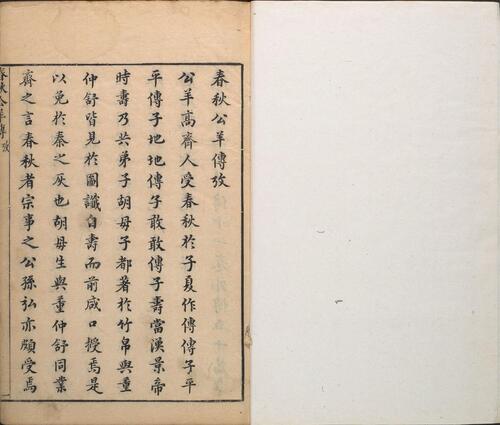 春秋公羊傳攷
公羊高齊人受春秋於子夏作傳傳子平
平傳子地地傳子敢敢傳子壽當漢景帝
時壽乃共弟子胡毋子都著於竹帛與董
仲舒皆見於圖讖自壽而前咸口授焉是
以免於秦之灰也胡毋生與董仲舒同業
齊之言春秋者宗事之公孫弘亦頗受焉
春秋公羊傳攷
一